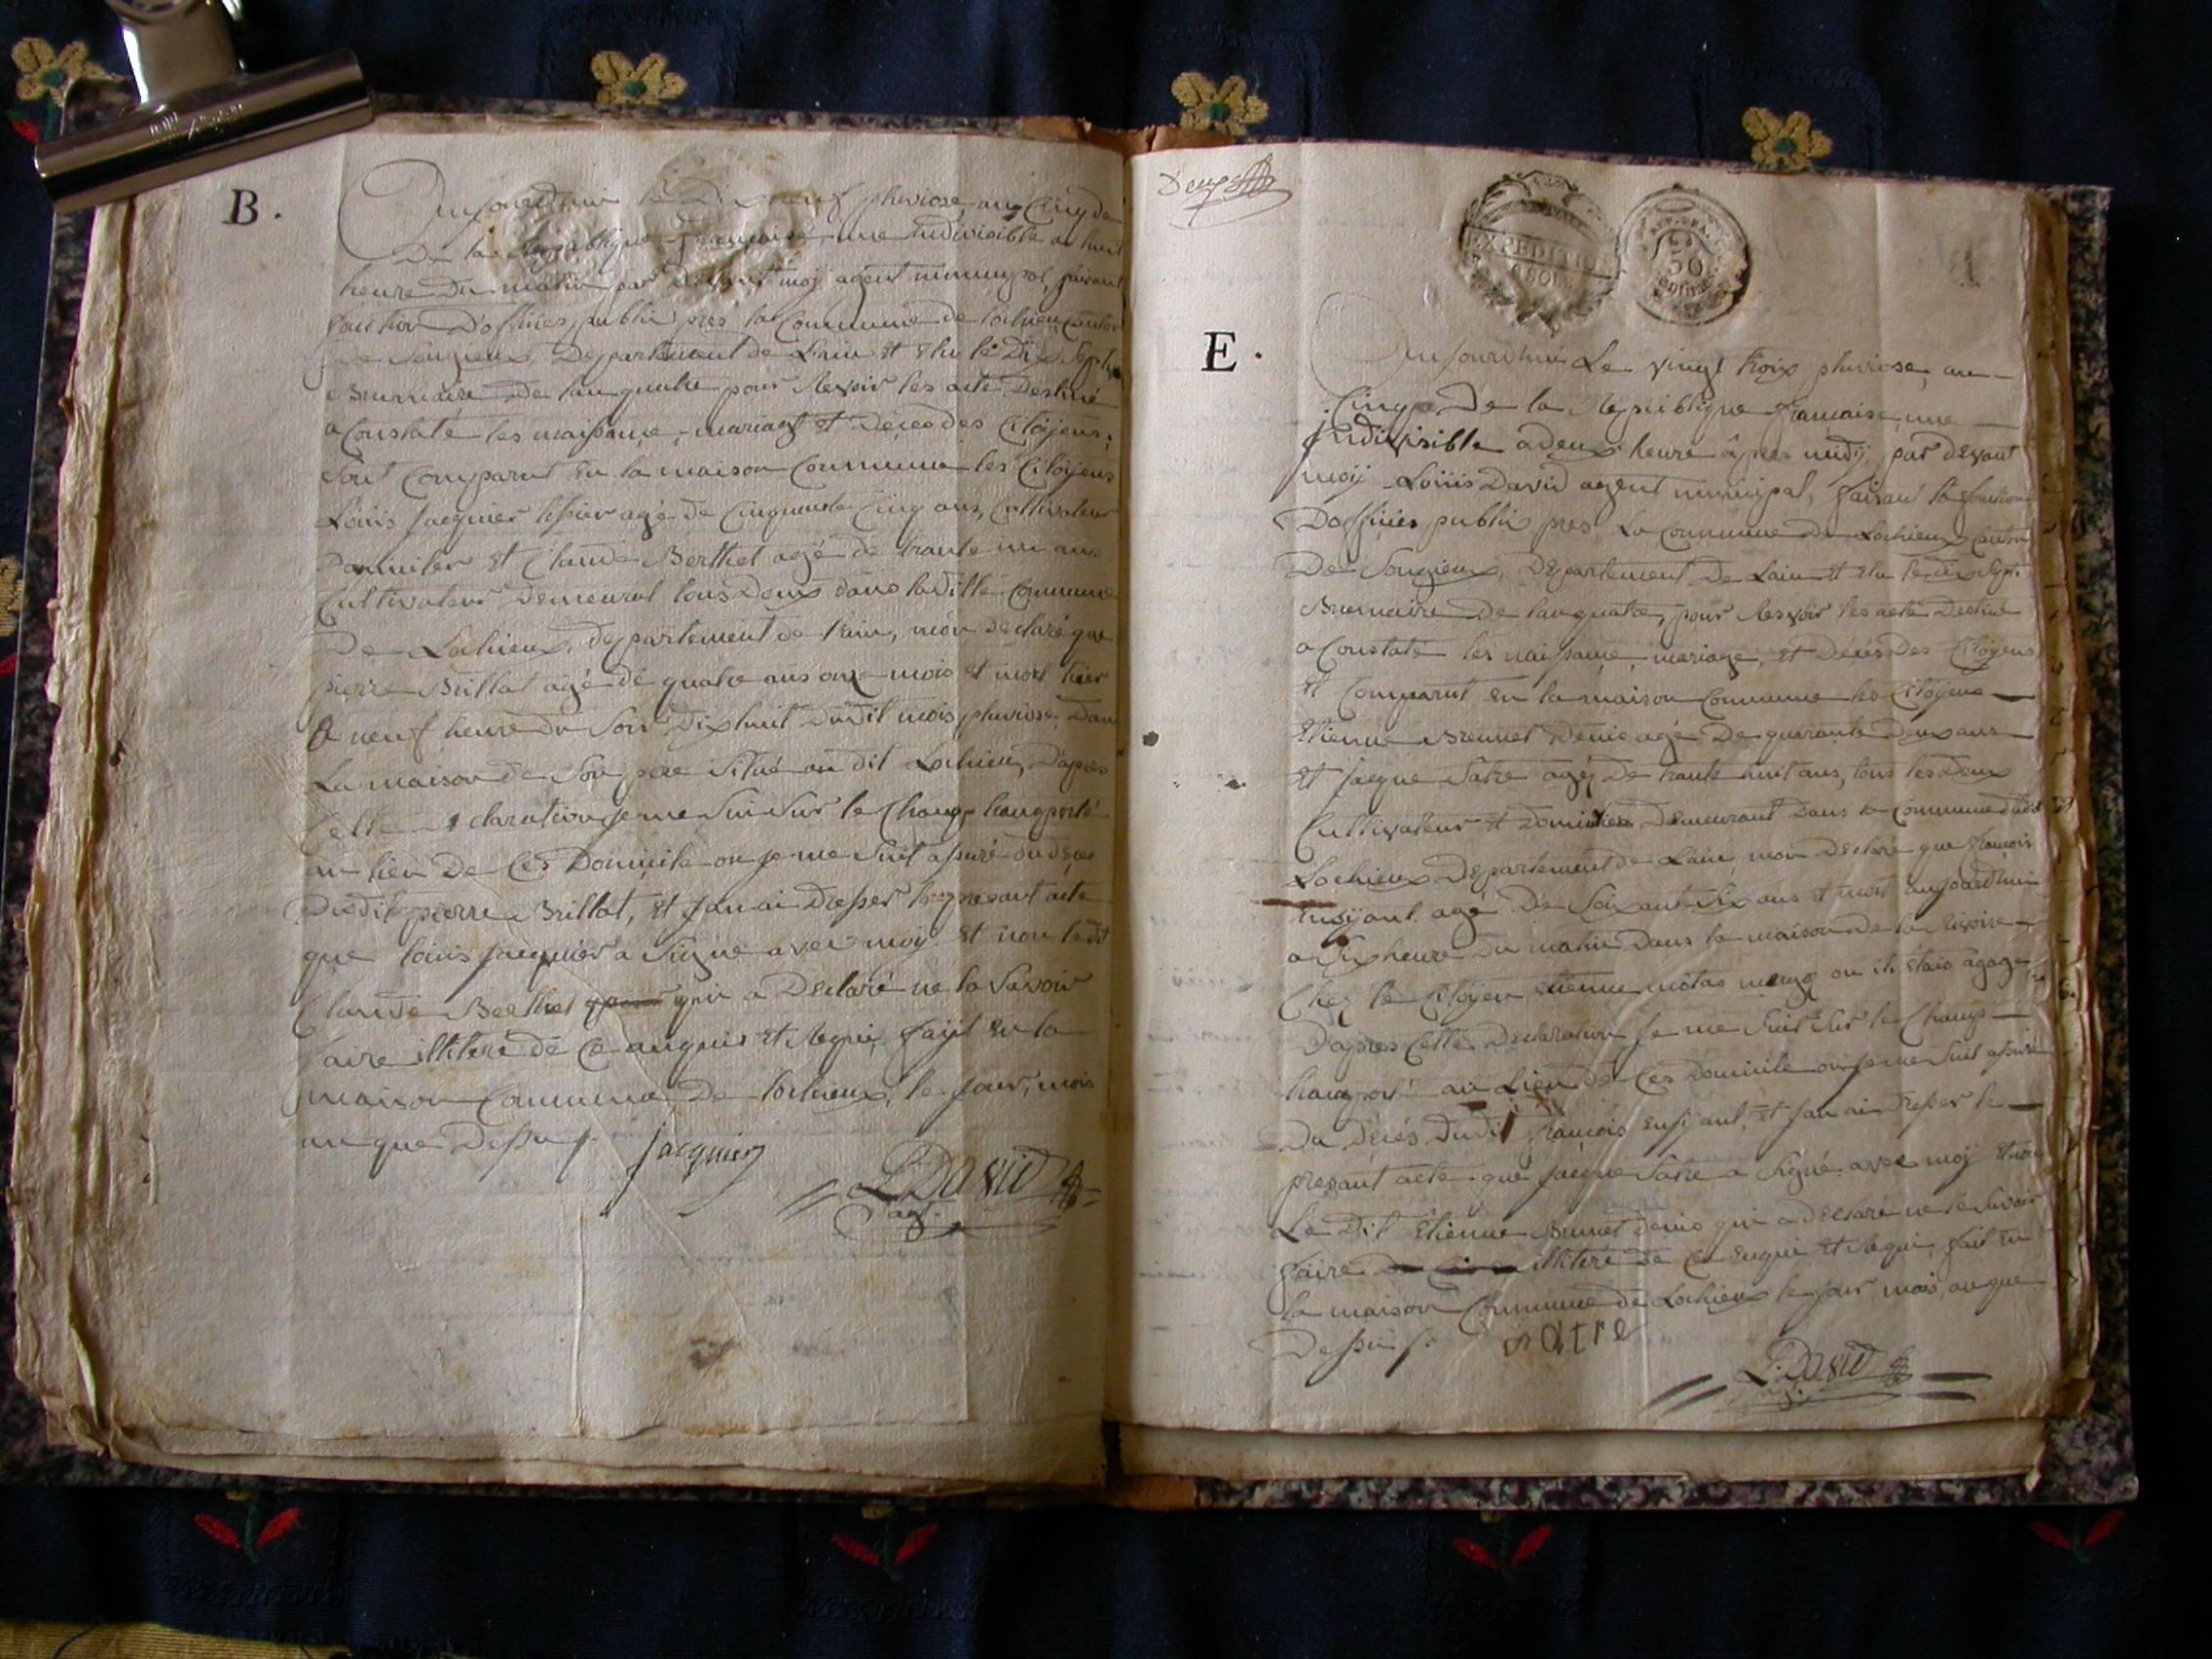 B.
Aujourdhui le Dix neuf pluviose an Cinq de
De la Republique française, une Indivisible a huit
heure Du matin par devant moy agent municipal, faisant
fonction D'officier publi pres la Commune de Lochieu Canton
de Songieux, Departement de Lain et elu le Dix Sept
Brumaire De lan quatre pour Resvoir les acte Destiné
a Constaté les naissance, mariage et Deces des Citoyens,
Sont Comparut En la maison Commune les Citoyens
Louis Jacquier tessier agé de Cinquante Cinq ans, Cultivateur
et Claude Berthet agé de trante un ans
Cultivateur Demeurat tous Deux dans la Ditte Commune
De Lochieux, departement de Lain, mon declaré que
pierre Brillat agé de quatre ans onze mois et mort hier
a neuf heure du Soir Dix huit Dudit mois pluviose, Dans
La maison de Son pere Situé au dit Lochieu, D'apres
Cette Declaration je me Sui Sur le Champ transporté
au lieu De Ces Domicile ou je me Suit assuré du deces
Dudit pierre Brillat, et Jan ai Dresser le presant acte
que Louis Jacquier a Signé avec moy et non ledit
Claude Berthet qui a Declaré ne la Savoir
faire illiteré de Ce anquis et Requi, fayt En la
maison Commune De Lochieux, le jour, mois
an que Dessus.
Jacquier
L. David
agt.
E.
Aujourdhui Le vingt trois pluviose, an
Cinq De la Republique française, une
Indivisible a deux heure apres midy, par devant
moy Louis David agent municipal, faisant la fonction
Dofficier publi pres La Commune De Lochieux Canton
De Songieux, Departement De Lain et elu le dix Sept
Brumaire De lan quatre, pour Resvoir les acte Destiné
a Constaté les naissance, mariage, et Deces Des Citoyens
et Comparut En la maison Commune les Citoyens
Etienne Brunet Denis agé De quarante Deux ans
et Jacque Satre agé De trante huit ans, tous les Deux
Cultivateur et Demeurant Dans la Commune dudit
Lochieux Departement de Lain, mon Declaré que françois
agé De Soixante Six ans et mort aujourdhui
a Six heure Du matin Dans la maison De la Rivoire
Chez le Citoyen Etienne ou il Etais
D'apres Cette Declaration Je me Suis Sur le Champ
transporté au Lieu de Ces Domicile ou Je me Suit assuré
Du Décés Dudit françois et Jan ai Dresser le
presant acte que Jacque Satre a Signé avec moy et non
Le Dit Etienne Brunet Denis qui a Declaré ne le Savoir
faire illiteré De Ce Enquis et Requi, fait En
la maison Commune de Lochieux le Jour mois an que
Dessus.
satre
L. David
agt.
EXPEDITION
50